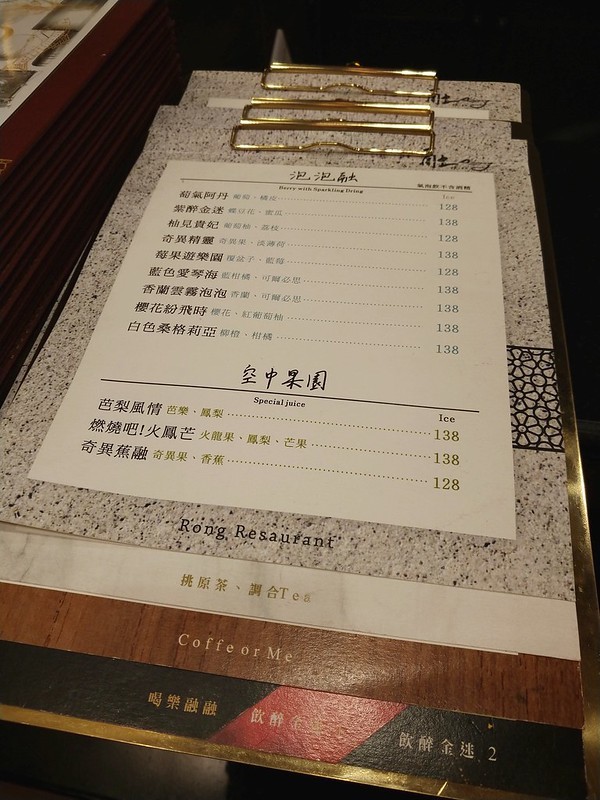 泡泡融
Berry with Sparkling Dring 氣泡飲不含酒精
Ice
萄氣阿丹 葡萄、橘皮 128
紫醉金迷 蝶豆花、蜜瓜 138
柚見貴妃 葡萄柚、荔枝 128
奇異精靈 奇異果、淡薄荷 138
莓果遊樂園 覆盆子、藍莓 128
藍色愛琴海 藍柑橘、可爾必思 138
香蘭雲霧泡泡 香蘭、可爾必思 138
櫻花紛飛時 櫻花、紅葡萄柚 138
白色桑格莉亞 柳橙、柑橘 138
空中果園
Special juice
Ice
芭梨風情 芭樂、鳳梨 138
燃燒吧!火鳳芒 火龍果、鳳梨、芒果 138
奇異蕉融 奇異果、香蕉 128
Rong Resaurant
挑原茶、調合Tea
Coffe or Me
喝樂融融 飲醉金迷 飲醉金迷 2